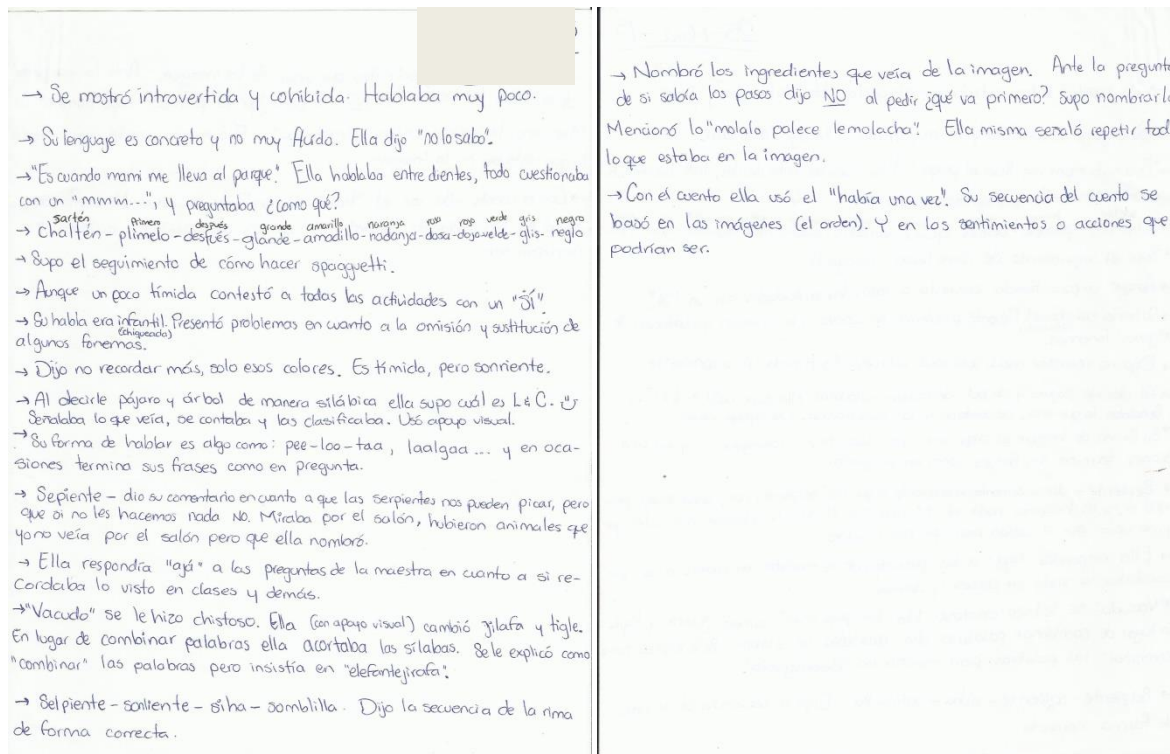 → Se mostró introvertida y cohibida. Hablaba muy poco.
→ Su lenguaje es concreto y no muy fluído. Ella dijo "no lo sabo".
→ "Es cuando mami me lleva al parque". Ella hablaba entre dientes, todo cuestionaba
con un "mmm...", y preguntaba ¿Como qué?
sartén primero después grande amarillo naranja rosa rojo verde gris negro
→ chaltén - plimelo - destués - glande - amadillo - nadanja - dosa - dojo - velde - glis - neglo
→ Supo el seguimiento de cómo hacer spagguetti.
→ Aunque un poco tímida contestó a todas las actividades con un "SÍ".
→ Su habla era infantil. Presentó problemas en cuanto a la omisión y sustitución de
(chiqueado)
algunos fonemas.
→ Dijo no recordar más, solo esos colores. Es tímida, pero sonriente.
→ Al decirle pájaro y árbol de manera silábica ella supo cuál es L & C.
Señalaba lo que veía, se contaba y las clasificaba. Usó apoyo visual.
→ Su forma de hablar es algo como: pee-loo-taa, laalgaa... y en oca-
siones termina sus frases como en pregunta.
→ Sepiente - dio su comentario en cuanto a que las serpientes nos pueden picar, pero
que si no les hacemos nada NO. Miraba por el salón, hubieron animales que
yo no veía por el salón pero que ella nombró.
→ Ella respondía "ajá" a las preguntas de la maestra en cuanto a si re-
cordaba lo visto en clases y demás.
→ "Vacudo" se le hizo chistoso. Ella (con apoyo visual) cambió jilafa y tigle.
En lugar de combinar palabras ella acortaba las sílabas. Se le explicó como
"combinar" las palabras pero insistía en "elefantejirafa".
→ Selpiente - sonliente - siha - somblilla. Dijo la secuencia de la rima
de forma correcta.
→ Nombró los ingredientes que veía de la imagen. Ante la pregunta
de si sabía los pasos dijo NO al pedir ¿qué va primero? Supo nombrarlo
Mencionó lo "molalo palece lemolacha". Ella misma señaló repetir tod
lo que estaba en la imagen.
→ Con el cuento ella usó el "había una vez". Su secuencia del cuento se
basó en las imágenes (el orden). Y en los sentimientos o acciones que
podrían ser.